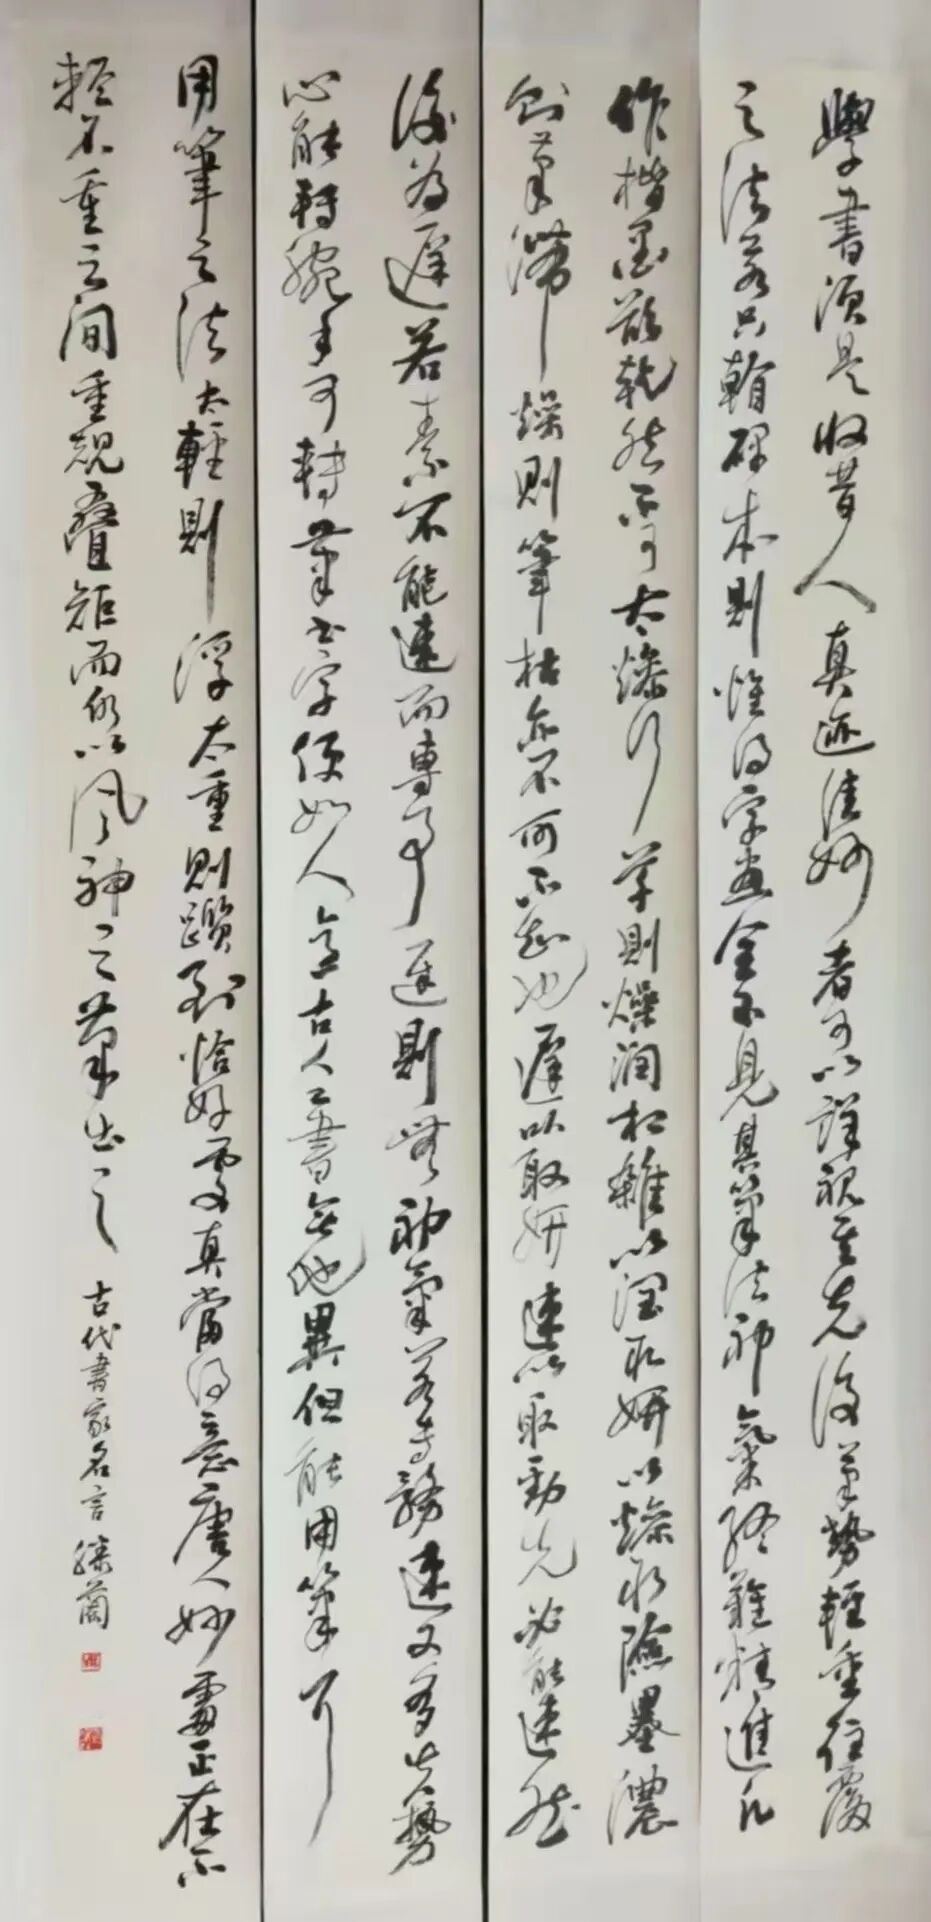 學書須是收昔人真迹佳妙者可以詳視其先後筆勢輕重往覆
之法若只看碑本則惟得字畫全不見其筆法神氣終難精進凡
作楷墨欲乾然不可太燥行草則燥潤相雜以潤取妍以燥取險墨濃
則筆滯燥則筆枯亦不可不知也遲以取妍速以取勁先必能速然
後為遲若素不能速而專事遲則無神氣若專務速又多失勢
心能轉腕手可轉筆書字便如人意古人工書無他異但能用筆耳
用筆之法太輕則浮太重則躓到恰好處真當得意唐人妙處正在不
輕不重之間重規疊矩而仍以風神之筆出之
古代書家名言